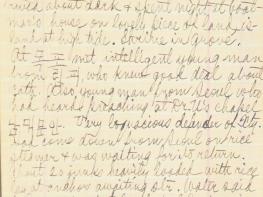 rived about dark & spent night at boat-
man's house on lovely piece of land, is-
land at high tide. Shrine in grove.
At met intelligent young man
from who knew good deal about
Cath. Also, young man from Seoul who
had heard preaching at Dr. U's chapel
Very loquacious defender of
had come down from Seoul on rice
steamer & was waiting for its return.
About 20 junks heavily loaded with rice
lay at anchor awaiting str. Water said